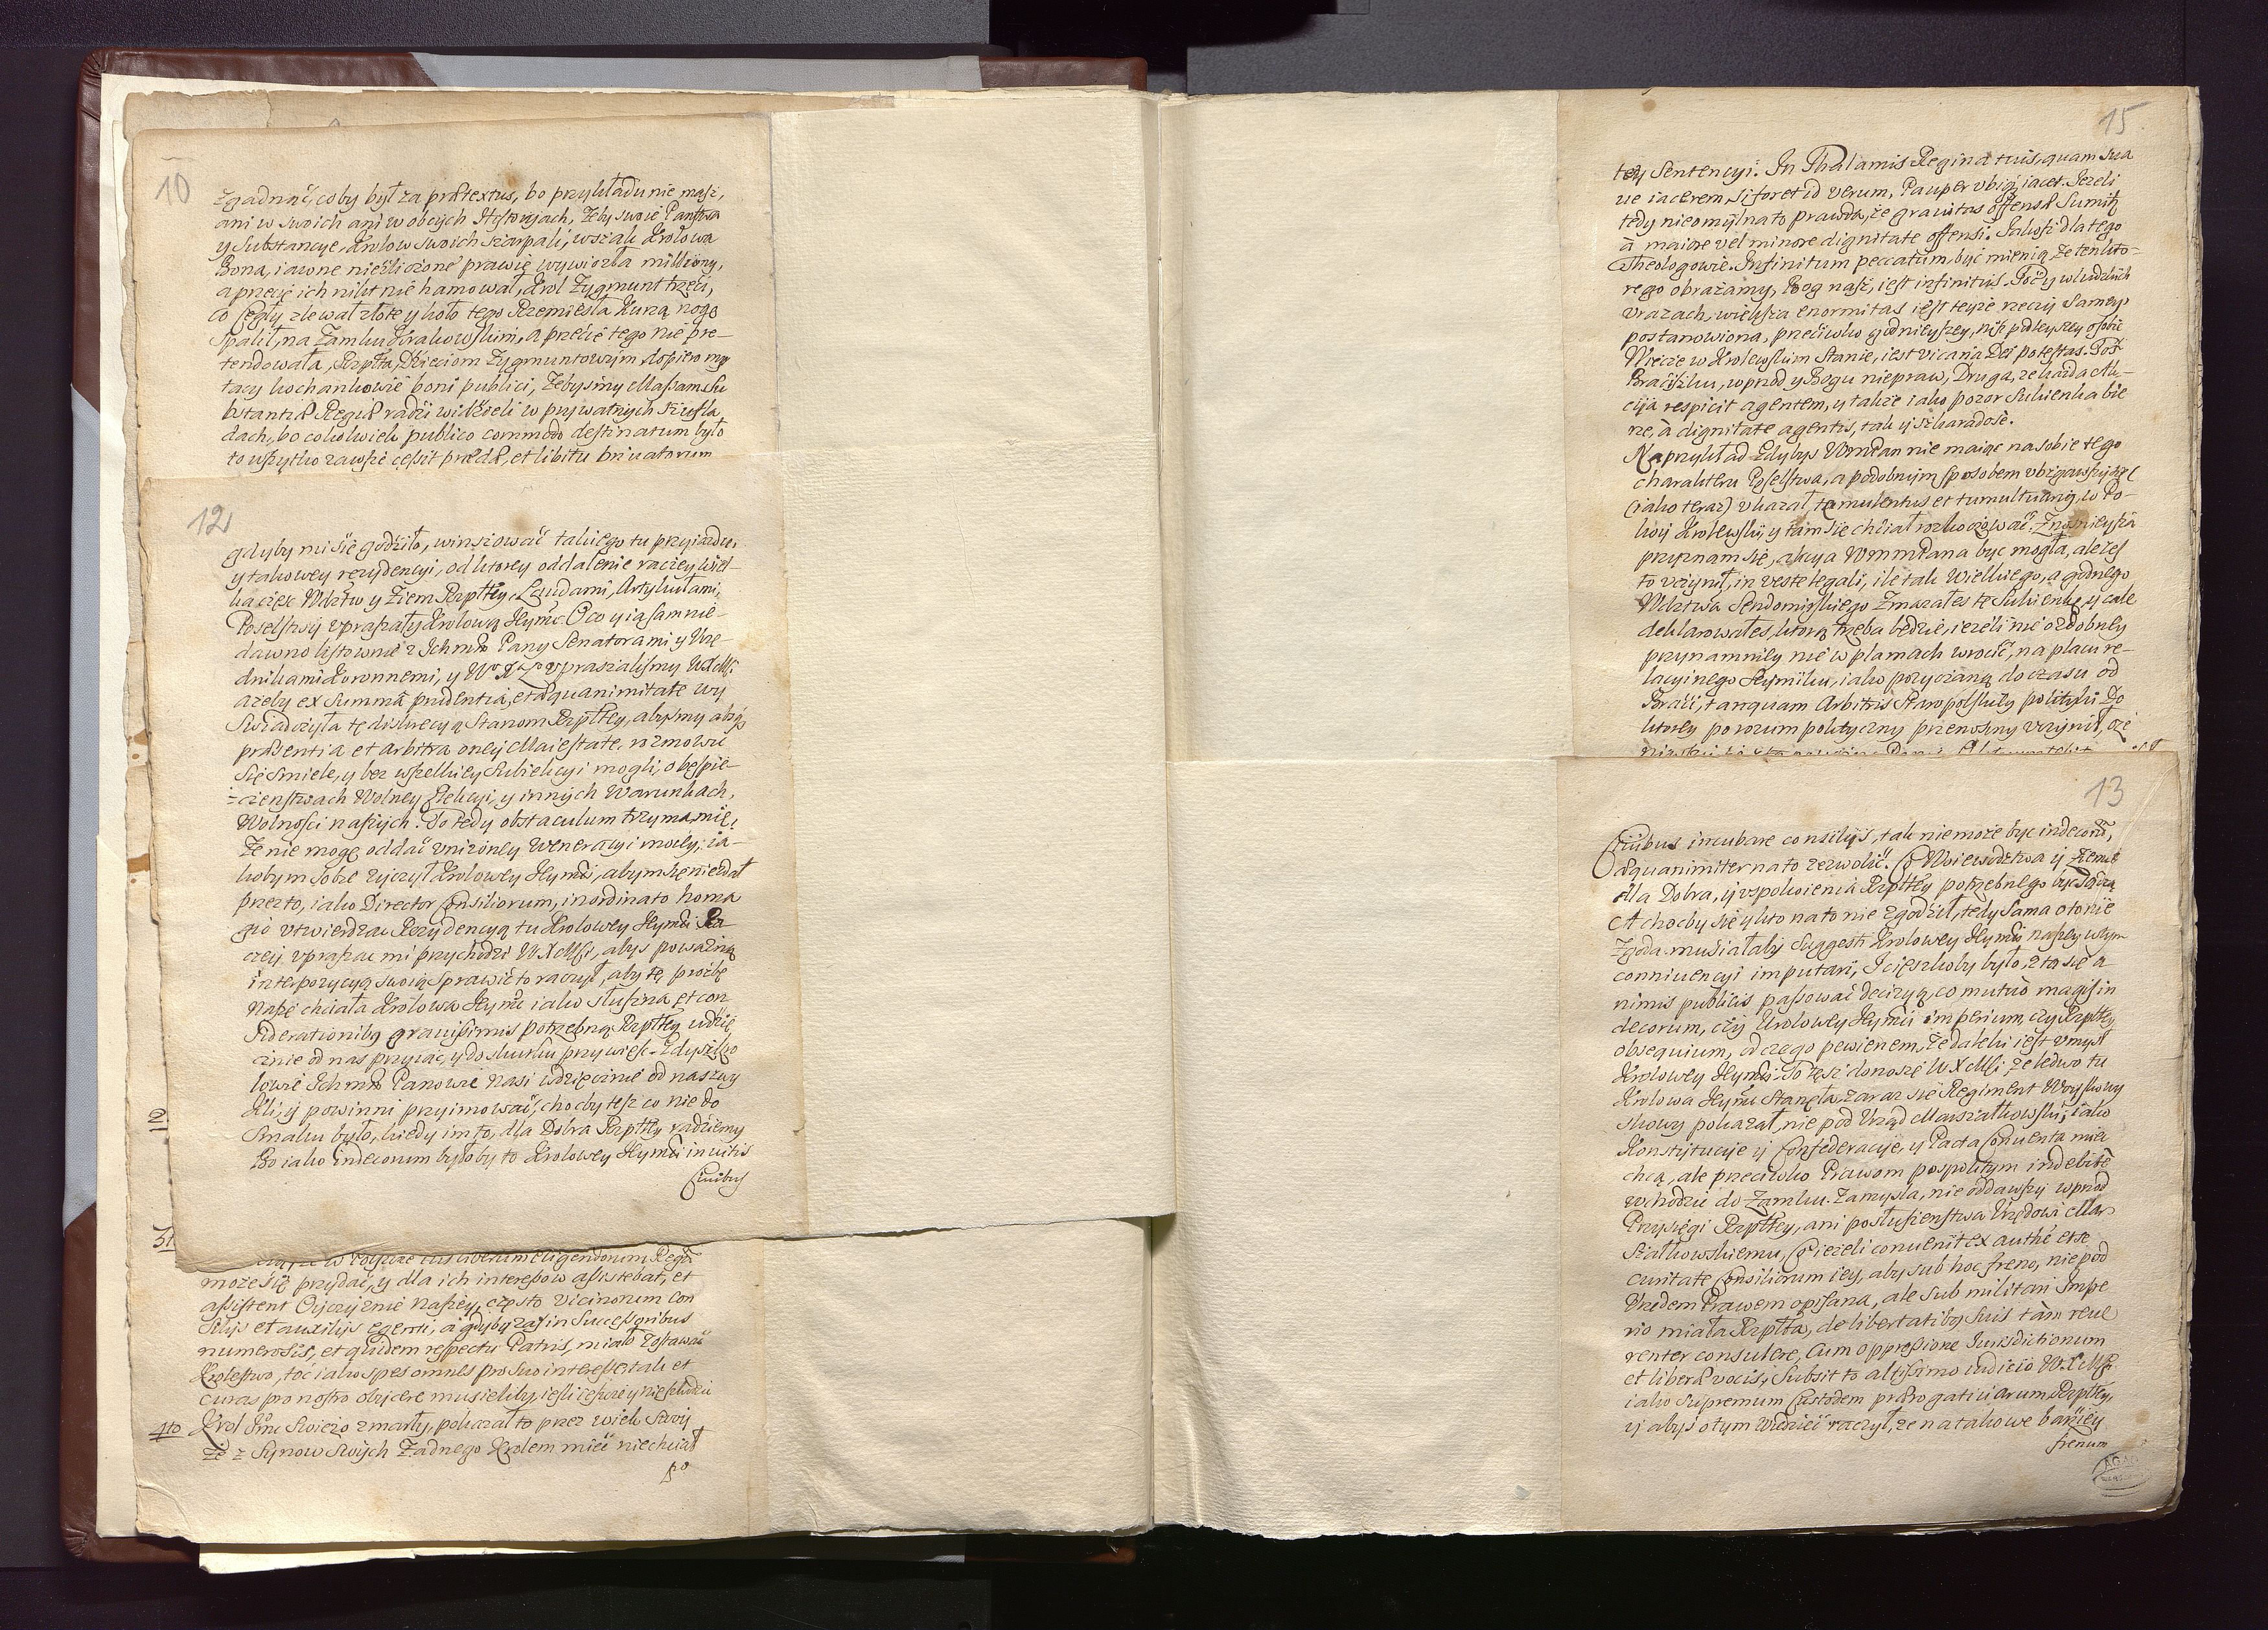 10
zgadnąć, coby był za prætextus, bo przykładu nie masz,
ani w swoich ani w obcych Hystoryach, żeby swoie Państwa
y Substancye, Krolow swoich szarpali, wszak Krolowa
Bona, iawne niezliczone prawie wywiozła milliony,
a przecię ich nikt nie hamował, Krol Zygmunt trzeci,
co Cegły zlewał złote y koło tego Rzemiesła Kurzą nogę
spalił, na Zamku Krakowskim, a przecie tego nie pre-
tendowała, Rzpłta, Dzieciom Zygmuntowym, dopiero my
tacy kochankowie boni publici, żebysmy Massam Su
bstantiæ Regiæ radzi widzieli w prywatnych szufla
dach, bo cokolwiek publico commodo destinatum było
to wszytko zawsze cessit prædæ, et libitu privatorum
12
gdyby mi się godziło, winszować takiego tu przyiazdu,
y takowey rezydencyi, od ktorey oddalenie raczey wiel
ka częsc Wdztw y Ziem Rzptey, Laudami, Artykułami,
Poselstwy upraszały Krolową Jeymć. O co y ia sam nie-
dawno listownie z Ichmć Pany Senatorami y Urzę-
dnikami Koronnemi, y upraszalismy WXMsci
ażeby ex summa prudentia, et æquanimitate wy
swiadczyła tę diskrecyą Stanom Rzptey, abysmy absq
præsentia et arbitra oney Maiestate, rozmowić
się smiele, y bez wszelkiey Subiekcyi mogli, o bespie-
czenstwach Wolney Elekcyi, y innych Warunkach,
Wolnosci naszych. To tedy obstaculum trzyma mię,
że nie mogę oddać unizoney Weneracyi moiey, ia-
kobym sobie zyczył Krolowey Jeymci, abym się nie zdał
przez to, iako Director Consiliorum, inordinato homa
gio utwierdzać Rezydencyą tu Krolowey Jeymci. Ra
czey upraszać mi przychodzi WXMsci, abys powazną
interpozycyą swoią sprawić to raczył, aby tę prozbę
naszę chciała Krolowa Jeymć iako słuszną et con
siderationibq gravissimis potrzebną Rzptey wdzię
cznie od nas przyiąć, y do skutku przywiesc. Gdyz Kro
lowie Ichmć Panowie nasi wdzięcznie od nas zwy
kli, y powinni przyimować, chocby tesz co nie do
smaku było, kiedy im to, dla Dobra Rzptey radziemy
Bo iako indecorum byłoby to Krolowey Jeymci invitis
Civibus
2
3t
moze się przydać, y dla ich interessow assistebat, et
assistent Oyczyznie naszey, często vicinorum con
siliis et auxiliis egenti, a gdyby zas in Successoribus
numerosis, et quidem respectu Patris, miało zostawać
Krolestwo, toć iako spes omnes pro suo interesse tak et
curas pro nostro obiicere musieliby, iesli
4to Krol Jmć swiezo zmarły, pokazał to przez wiek swoy
że z Synow swych żadnego Krolem mieć nie chciał
po
15
tey Sentencyi. In Thalamis Regina tuis, quam sua
ve iacerem, si foret id verum, Pauper ubiq iacet. Jezeli
tedy nieomylna to prawda, że gravitas offensæ sumitq
à maiore vel minore dignitate offensi. Jakosz dla tego
Theologowie. Infinitum peccatum, być mienią, że ten kto-
rego obrazamy, Bog nasz, iest infinitus. Toć y w ludzkich
urazach, większa enormitas iest teyże rzeczy samey
postanowiona, przeciwko godnieyszey, nisz podleyszey osobie
Więc że w Krolewskim stanie, iest vicaria Dei potestas. Toś
Braciszku, w przod y Bogu nie praw, Druga, że kazda Ak-
cyia respicit agentem, y także iako pozor Sukienka bie
rze, à dignitate agentis, tak y szkaradosc.
Na przykład Gdybys WmPan nie maiąc na sobie tego
charakteru Poselstwa, a podobnym sposobem ubrgawszy się
(iako teraz) ukazał, temulentus et tumultuans, w Po-
koy Krolewski, y tam się chciał rozkoczować. Znosnieysza
przyznam się, akcya WmmPana byc mogła, ale żes
to uczynił, in veste legali, ile tak Wielkiego, a godnego
Wdztwa Sendomirskiego zmazałes tę Sukienkę, y cale
deklarowałes, ktorą trzeba będzie, iezeli nie ozdobney
przynamniey nie w plamach wrocić, na placu re-
lacyinego Seymiku, iako pozyczaną do czasu od
Braci, tanquam Arbitris Staropolskiey polityki. Do
ktorey pozorum polityczny przenosny uczynił, że
13
Civibus incubare consiliis, tak nie może byc indecorū,
æquanimiter na to zezwolić. Co Woiewodztwa y Ziemie
dla Dobra, y uspokoienia Rzptey potrzebnego byc sądzą
A chocby się y kto na to nie zgodził, tedy sama o to nie
zgoda musiałaby suggesti Krolowey Jeymci naszey w tym
conniventyi imputari, I cięszkoby było, z tą się a
nimis publicis passować decizyą, co mutuò magis in
decorum, czy Krolowey Jeymci imperium, czy Rzptey
obsequium, od czego pewienem, że daleki iest umysł
Krolowey Jeymci. To tesz donoszę WXMsci, że ledwo tu
Krolowa Jeymć stanęła, zaraz się Regiment Woyskowy
skowy pokazał, nie pod Urząd Marszałkowski, iako
Konstytucyje y Confederacyje, y Pacta Conventa mieć
chcą, ale przeciwko Prawom pospolitym indebite
wchodzić do Zamku zamysla, nie oddawszy w przod
Przysięgi Rzptey, ani posłuszenstwa Urzędowi Mar
szałkowskiemu, Co iezeli convenit ex authē et se
curitate Consiliorum iey, aby sub hoc freno, nie pod
Urzedem Prawem opisana, ale sub militari Impe
rio miała Rzpta, de libertatibq suis tàm reve
renter consulere, Cum oppressione Jurisdictionum
et liberæ vocis, subsit to altissimo iudicio WXMsci
iako supremum Custodem prærogativarum Rzptey,
y abys o tym wiedzieć raczył, że na takowe barziey
frenum
AGAD